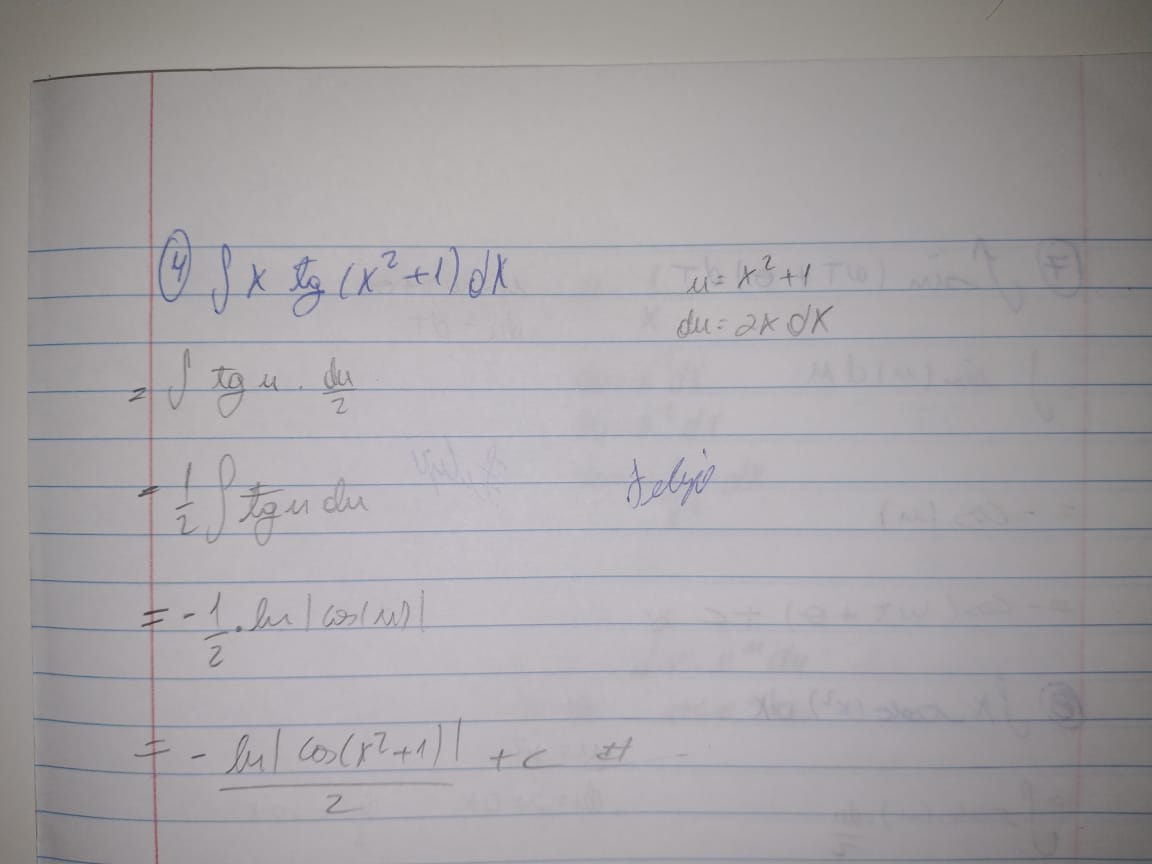 ④ ∫ x tg (x² + 1) dx
u = x² + 1
du = 2x dx
= ∫ tg u . du/2
= 1/2 ∫ tg u du
Felipe
= - 1/2 . ln |cos(u)|
= - ln| cos(x² + 1) | / 2 + c #